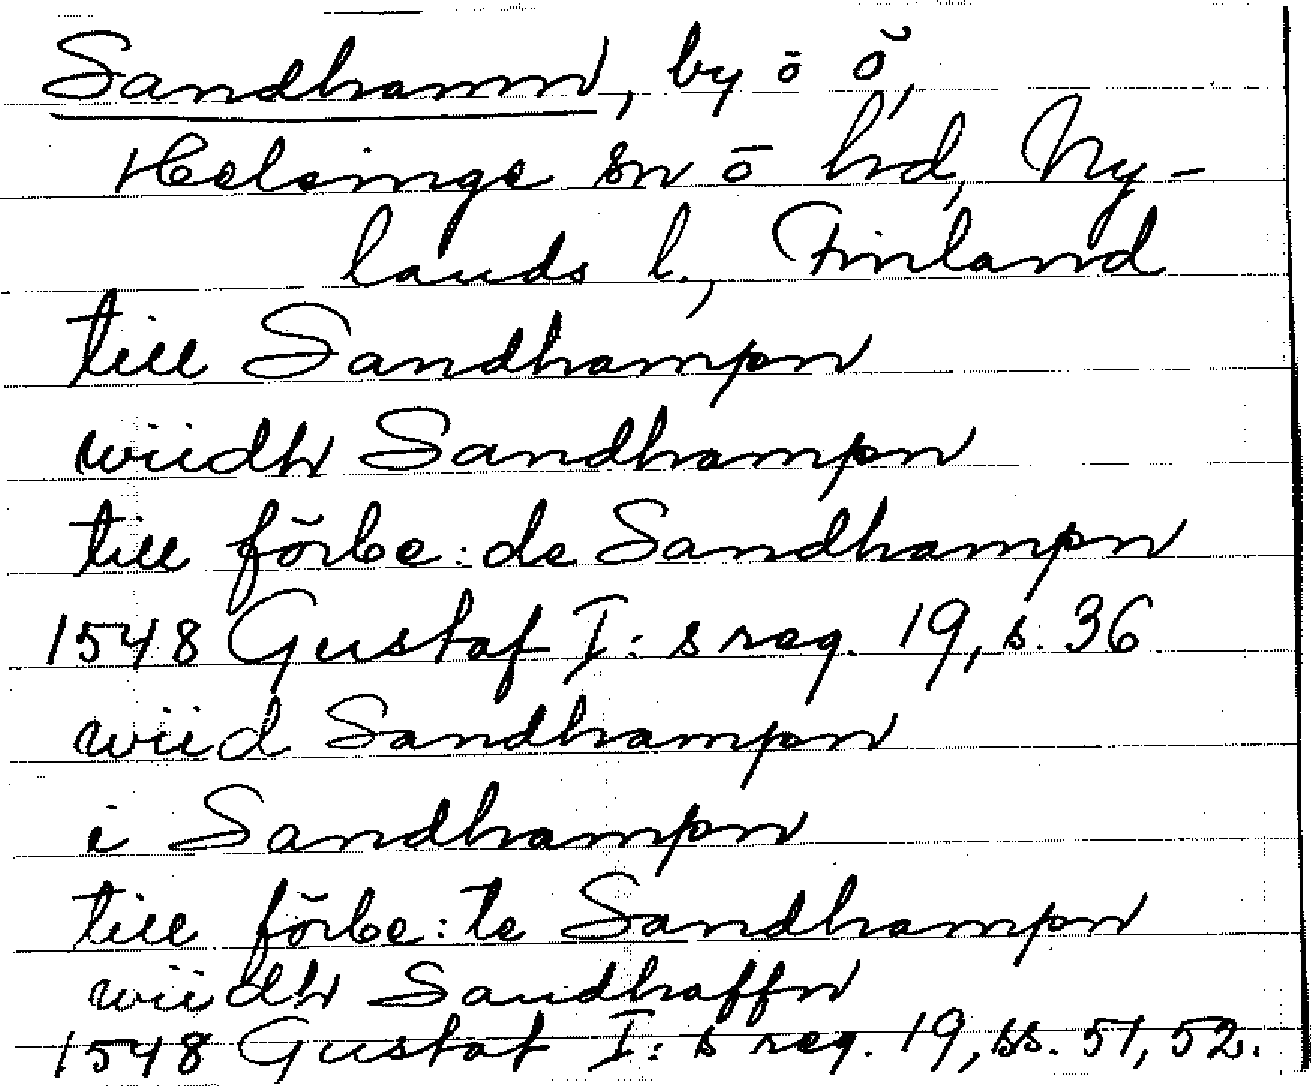 Sandhamn, by o̅ ö,
Helsinge sn o̅ hd, Ny-
lands l., Finland
till Sandhampn
wiidh Sandhampn
till förbe:de Sandhampn
1548 Gustaf I:s reg. 19, s. 36
wiid Sandhampn
i Sandhampn
till förbe:te Sandhampn
wiidh Sandhaffn
1548 Gustaf I:s reg. 19, ss. 51, 52.